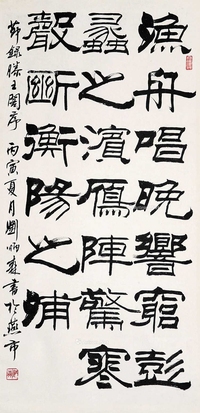 漁舟唱晚響窮彭
蠡之濱鴈陣驚寒
聲斷衡陽之浦
節錄滕王閣序 丙寅夏月劉炳森書於燕市